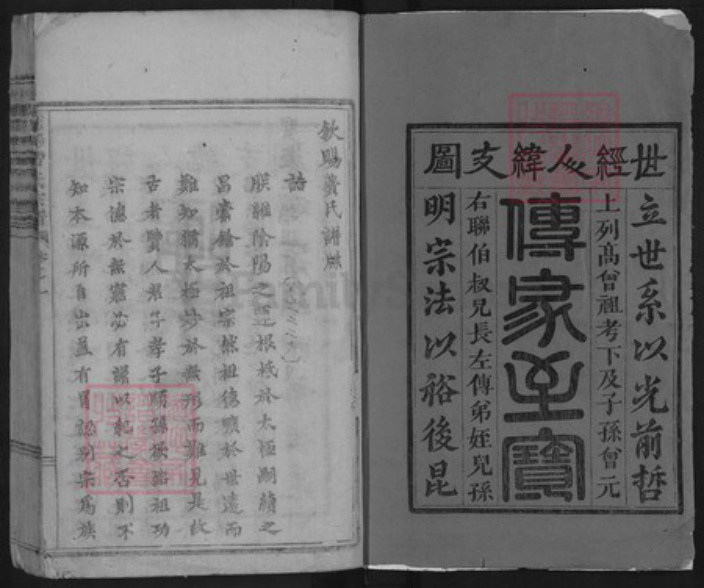 世經人緯支圖
立世系以光前哲
上列高曾祖考下及子孫曾元
傳家至寶
右聯伯叔兄長左傳弟姪兒孫
明宗法以裕後昆
欽賜黃氏譜牒
誥
朕離陰陽之運根柢於太極嗣續之
昌橐籥於祖宗然祖德顯於世遠而
難知猶太極妙於無形而難見是故
古者賢人君子孝子順孫族路祖功
宗德於無窮必有譜以紀之否則不
知本源所自出並有冒認別宗為族